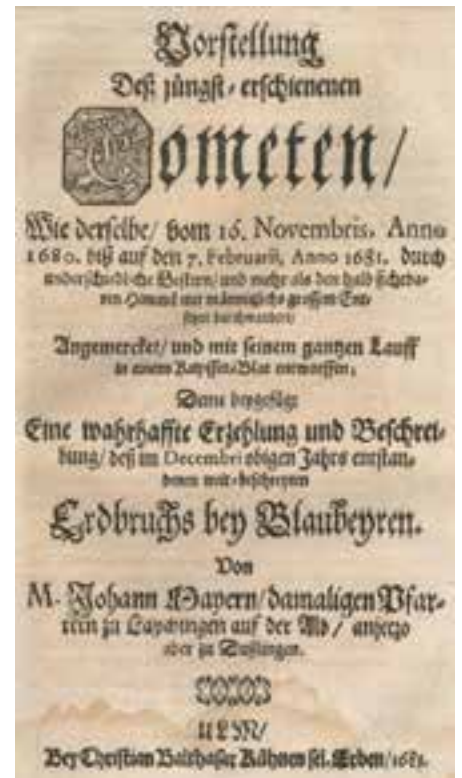 Vorstellung
Deß jüngst-erschienenen
Cometen/
Wie derselbe/ vom 16. Novembris, Anno
1680. biß auf den 7. Februarii, Anno 1681. durch
underschiedliche Gestirn/ und mehr als den halb sichtba-
ren Himmel mit männiglichs grossem Ent-
setzen durchwandert/
Angemercket/ und mit seinem gantzen Lauff
in einem Kupffer-Blat entworffen,
Deme beygefügt
Eine wahrhaffte Erzehlung und Beschrei-
bung/ deß im Decembri obigen Jahrs entstan-
denen
Erdbruchs bey Blaubeyren.
Von
M. Johann Mayern/ damaligen Pfar-
rern zu auf der Alb/ anjetzo
aber zu
ULM/
Bey Christian Balthasar Kühnen sel. Erben/ 1681.